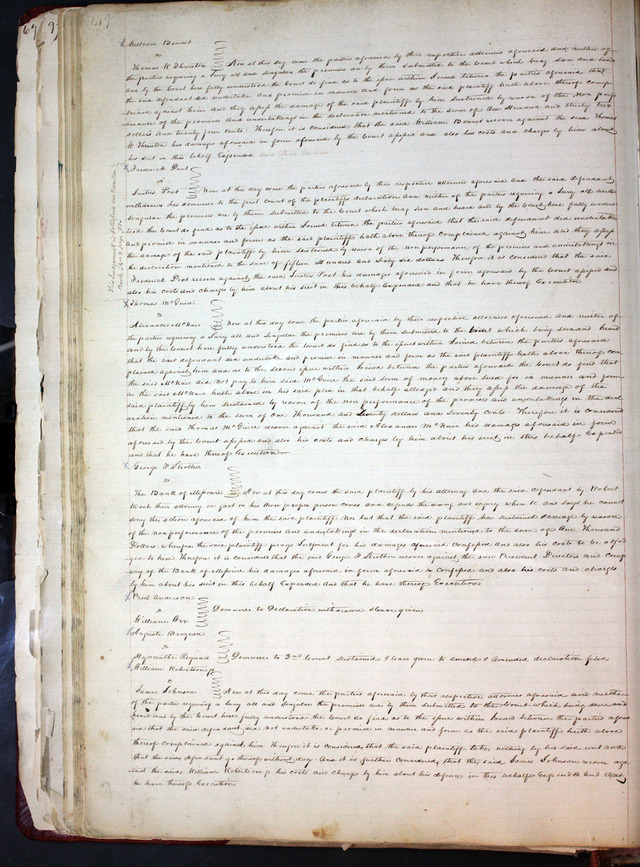 147
William Bennet
vs
Thomas W Thruston Now at this day come the parties aforesaid by their respective attornies aforesaid, and neither of
the parties requiring a Jury all and singular the premises are by them submitted to the Court which being seen and heard
and by the Court here fully understood the Court do find as to the issue within Joined between the parties aforesaid that
the said defendant did undertake and promise in manner and form as the said plaintiff hath above thereof comp
lained against him and they assess the damage of the said plaintiff by him sustained by reason of the Non perfo
rmance of the promises and undertakings in the declaration mentioned to the sum of One Hundred and thirty two
dollars and twenty four cents Therefore it is considered that the said William Bennet recover against the said Thomas
W Thruston his damages aforesaid in form aforesaid by the Court assessed and also his costs and charges by him about
his suit in this behalf Expended
Frederick Dent
vs
Justus Post Now at this day come the parties aforesaid by their respective attornies aforesaid and the said defendant
withdraws his demurrer to the first count of the plaintiffs declaration And neither of the parties requiring a Jury all and
singular the premises are by them submitted to the Court which being seen and heard and by the Court here fully under
stood the Court do find as to the issue within Joined between the parties aforesaid that the said defendant did undertake
and promise in manner and form as the said plaintiff hath above thereof complained against him and they assess
the damage of the said plaintiff by him sustained by reason of the non performance of the promises and undertakings in
the declaration mentioned to the sum of fifteen Hundred and Sixty six dollars Therefore it is considered that the said
Frederick Dent recover against the said Justus Post his damages aforesaid in form aforesaid by the Court assessed and
also his costs and charges by him about his suit in this behalf Expended and that he have thereof Execution
Thomas McGuire
vs
Alexander McNair Now at this day come the parties aforesaid by their respective attornies aforesaid and neither of
the parties requiring a Jury all and singular the premises are by them submitted to the Court which being seen and heard
and by the Court here fully understood the Court do find as to the issue within Joined between the parties aforesaid
that the said defendant did undertake and promise in manner and form as the said plaintiff hath above thereof com
plained against him and as to the second issue within Joined between the parties aforesaid the Court do find that
the said McNair did not pay to him said McGuire the said sum of money above sued for in manner and form
as the said McNair hath above in his said plea in that behalf alleged and they assess the damage of the
said plaintiff by him sustained by reason of the non performance of the promises and undertakings in the decl
aration mentioned to the sum of One Thousand and dollars and seventy cents Therefore it is considered
that the said Thomas McGuire recover against the said Alexander McNair his damages aforesaid in form
aforesaid by the Court assessed and also his costs and charges by him about his suit in this behalf Expended
and that he have thereof Execution
George F Strother
vs
The Bank of Missouri Now at this day comes the said plaintiff by his attorney and the said defendant by Robert
Wash their attorney in part in his own proper person comes and defends the wrong and injury when &c and says he cannot
deny the action aforesaid of him the said plaintiff Nor but that the said plaintiff has sustained damage by reason
of the non performance of the promises and undertakings in the declaration mentioned to the sum of One Thousand
Dollars wherefore the said plaintiff prays Judgment for his damages aforesaid Confessed and also his costs to be adjud
ged to him Therefore it is considered that the said George F Strother recover against the said President Directors and Comp
any of the Bank of Missouri his damages aforesaid in form aforesaid confessed and also his costs and charges
by him about his suit in this behalf Expended and that he have thereof Execution
Paul Anderson
vs Demurrer to Declaration withdrawn & leave given
William Orr
Auguste
vs
Hyacinthe Demurrer to 2nd Count sustained & leave given to amend & amended declaration filed
William Robertson
vs
James Johnson Now at this day come the parties aforesaid by their respective attornies aforesaid and neither
of the parties requiring a Jury all and singular the premises are by them submitted to the Court which being seen and
heard and by the Court here fully understood the Court do find as to the issue within Joined between the parties afore
said that the said defendant did not undertake or promise in manner and form as the said plaintiff hath above
thereof complained against him Therefore it is considered that the said plaintiff take nothing by his said writ and
that the said defendant go thereof without day And it is further considered that the said James Johnson recover aga
inst the said William Robertson his costs and charges by him about his defence in this behalf Expended And that
he have thereof Execution